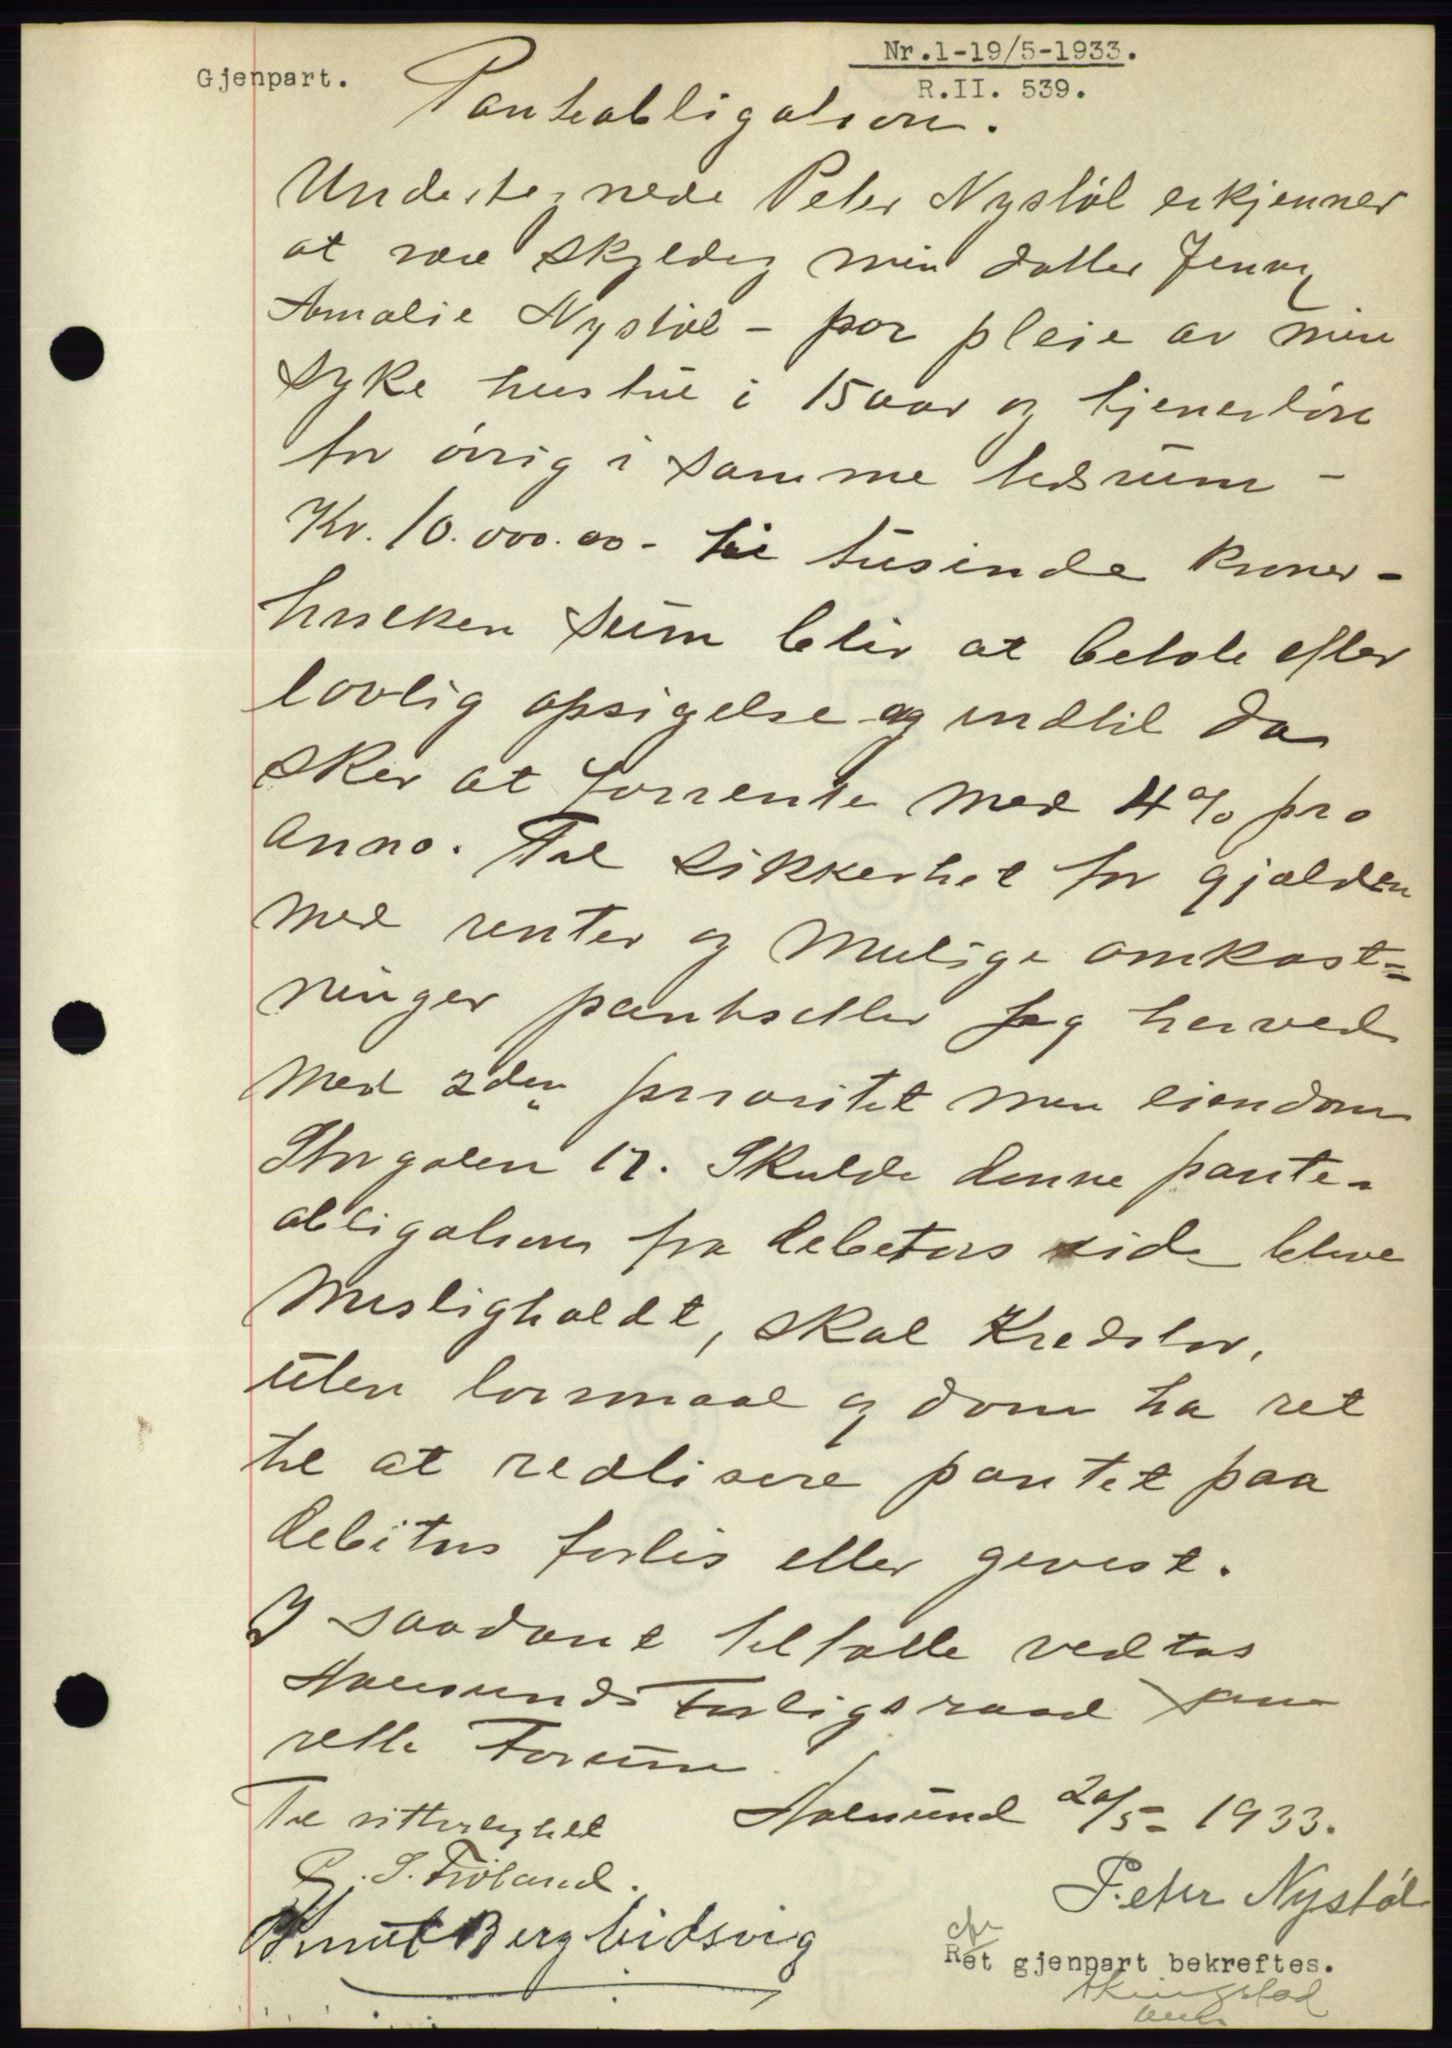 Nr.1-19/5-1933.
Gjenpart.
R.II. 539.
Panteobligation.
Undertegnede Peter Nystöl erkjenner
at være skyldig min datter Jenny
Amalie Nystöl - for pleie av min
syke hustru i 15 aar og tjenerlön
for övrig i samme tidsrum -
Kr. 10.000.00 - ti tusinde kroner -
hvilken sum blir at betale efter
lovlig opsigelse og indtil da
sker at forrente med 4% pro
anno. Til sikkerhet for gjælden
med renter og mulige omkost=
ninger pantsetter jeg herved
med 2den prioritet min eiendom
Storgaten 17. Skulde denne pante-
obligation fra debitors side blive
misligholdt, skal Kreditor,
uten lovmaal og dom ha ret
til at realisere pantet paa
debitors forlis eller gevinst.
I saadant tilfælde vedtas
Aalesunds Forligsraad som
rette Forum.
Aalesund 20/5 - 1933.
Til vitterlighet
P. S. Fröland.
Peter Nystöl
Knut Berg Eidsvig
Ret gjenpart bekreftes.